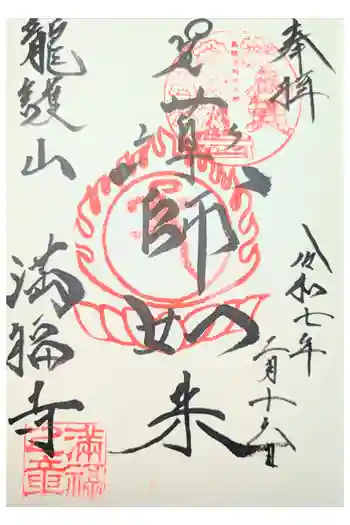 奉拝
令和七年二月十六日
薬師如来
龍護山
満福寺